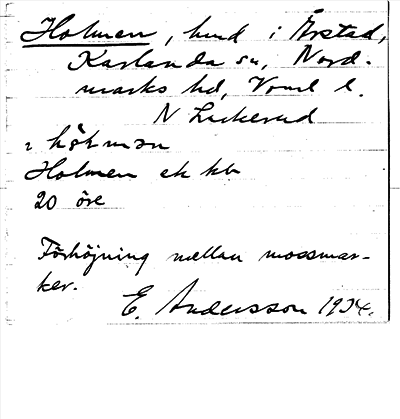 Holmen, hmd i Årstad,
Karlanda sn, Nord-
marks hd, Vrml l.
N Lickerud
Holmen ek kb
20 öre
Förhöjning mellan mossmar-
ker.
E. Andersson 1934.